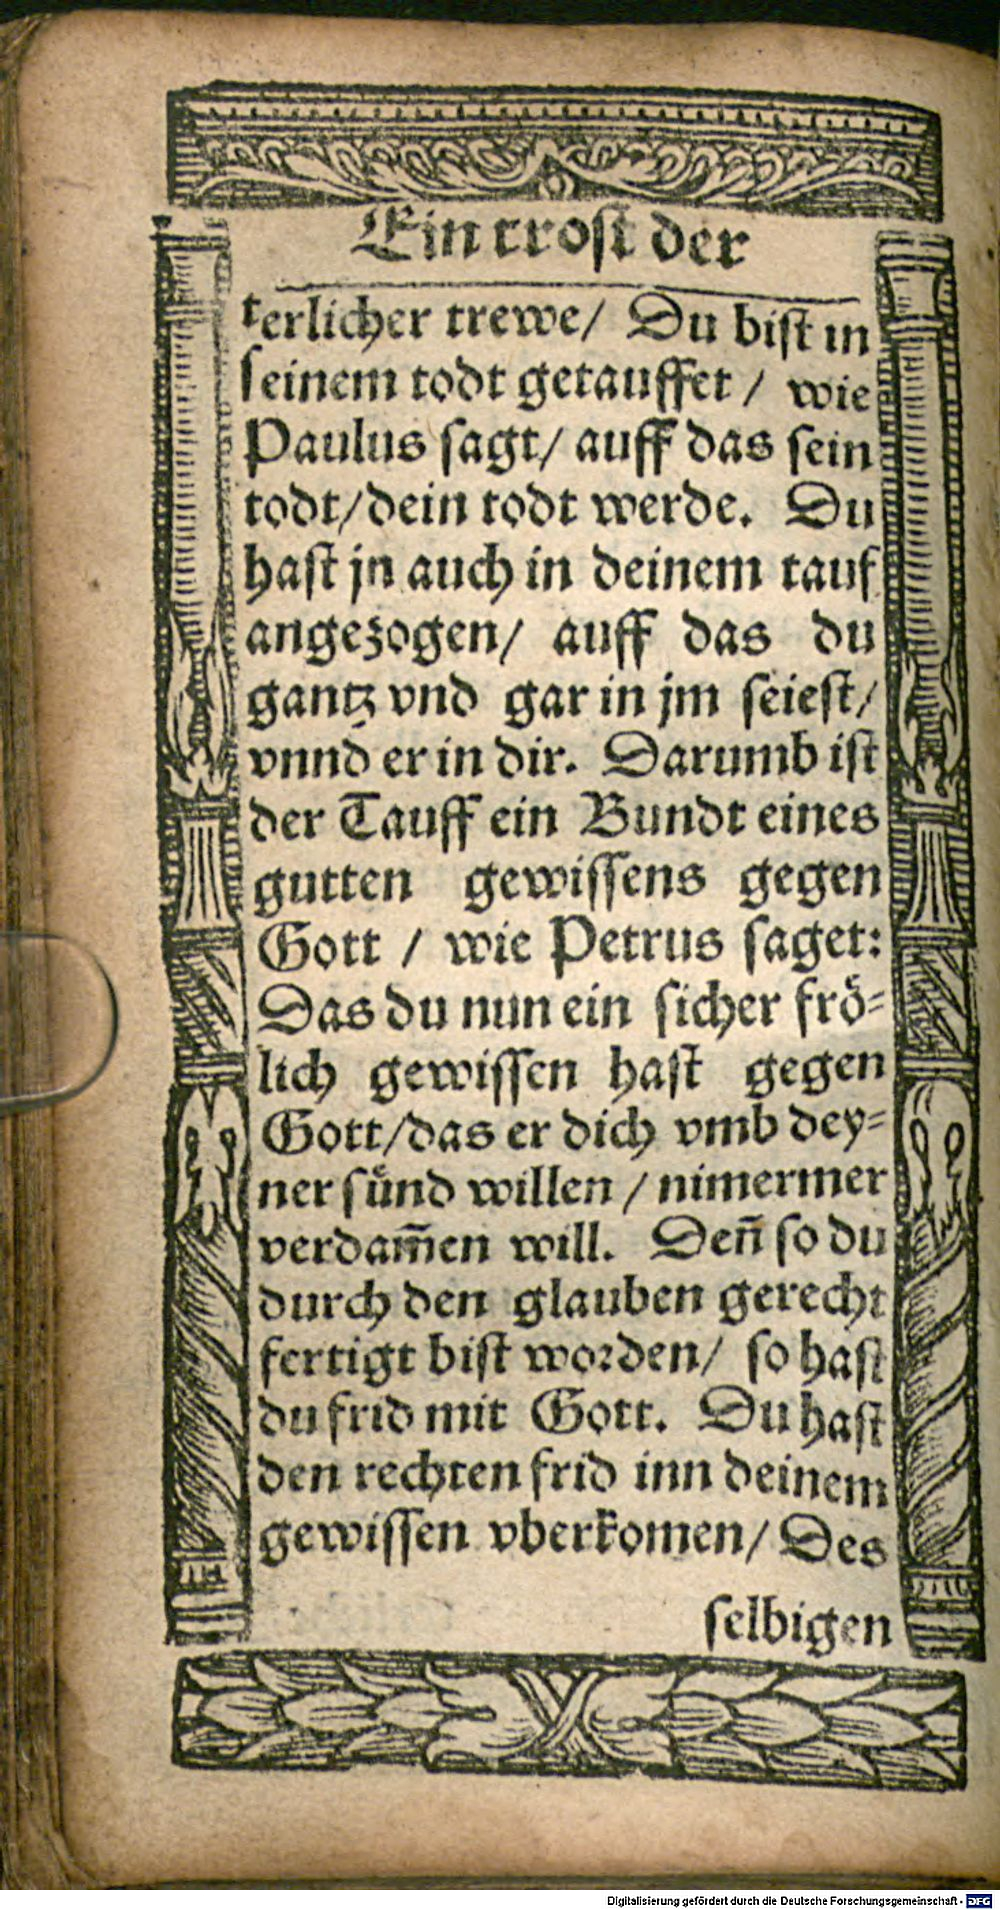 Ein trost der
terlicher trewe/ Du bist in
seinem todt getauffet / wie
Paulus sagt/ auff das sein
todt/dein todt werde. Du
hast jn auch in deinem tauf
angezogen/ auff das du
gantz vnd gar in jm seiest/
vnnd er in dir. Darumb ist
der Tauff ein Bundt eines
gutten gewissens gegen
Gott / wie Petrus saget:
Das du nun ein sicher frö=
lich gewissen hast gegen
Gott/das er dich vmb dey=
ner sünd willen / nimermer
verdam̄en will. Deñ so du
durch den glauben gerecht
fertigt bist worden/ so hast
du frid mit Gott. Du hast
den rechten frid inn deinem
gewissen vberkomen/ Des
selbigen
Digitalisierung gefördert durch die Deutsche Forschungsgemeinschaft - DFG